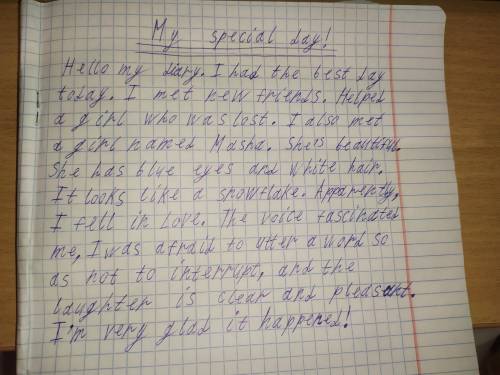 My special day!
Hello my diary. I had the best day
today. I met new friends. Helped
a girl who was lost. I also met
a girl named Masha. She's beautiful.
She has blue eyes and white hair.
It looks like a snowflake. Apparently,
I fell in love. The voice fascinated
me, I was afraid to utter a word so
as not to interrupt, and the
laughter is clear and pleasant.
I'm very glad it happened!